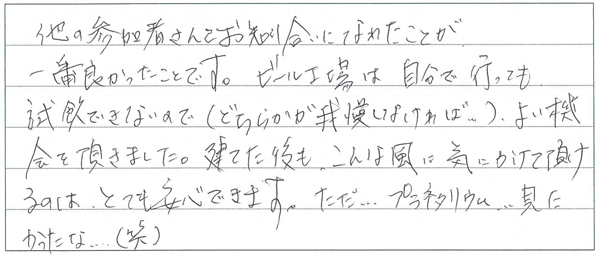 他の参加者さんとお知り合いになれたことが
一番良かったことです。ビール工場は自分で行っても
試飲できないので(どちらかが我慢しなければ…)、よい機
会を頂きました。建てた後も、こんな風に気にかけて頂け
るのは、とても安心できます。ただ…プラネタリウム…見た
かったな…(笑)